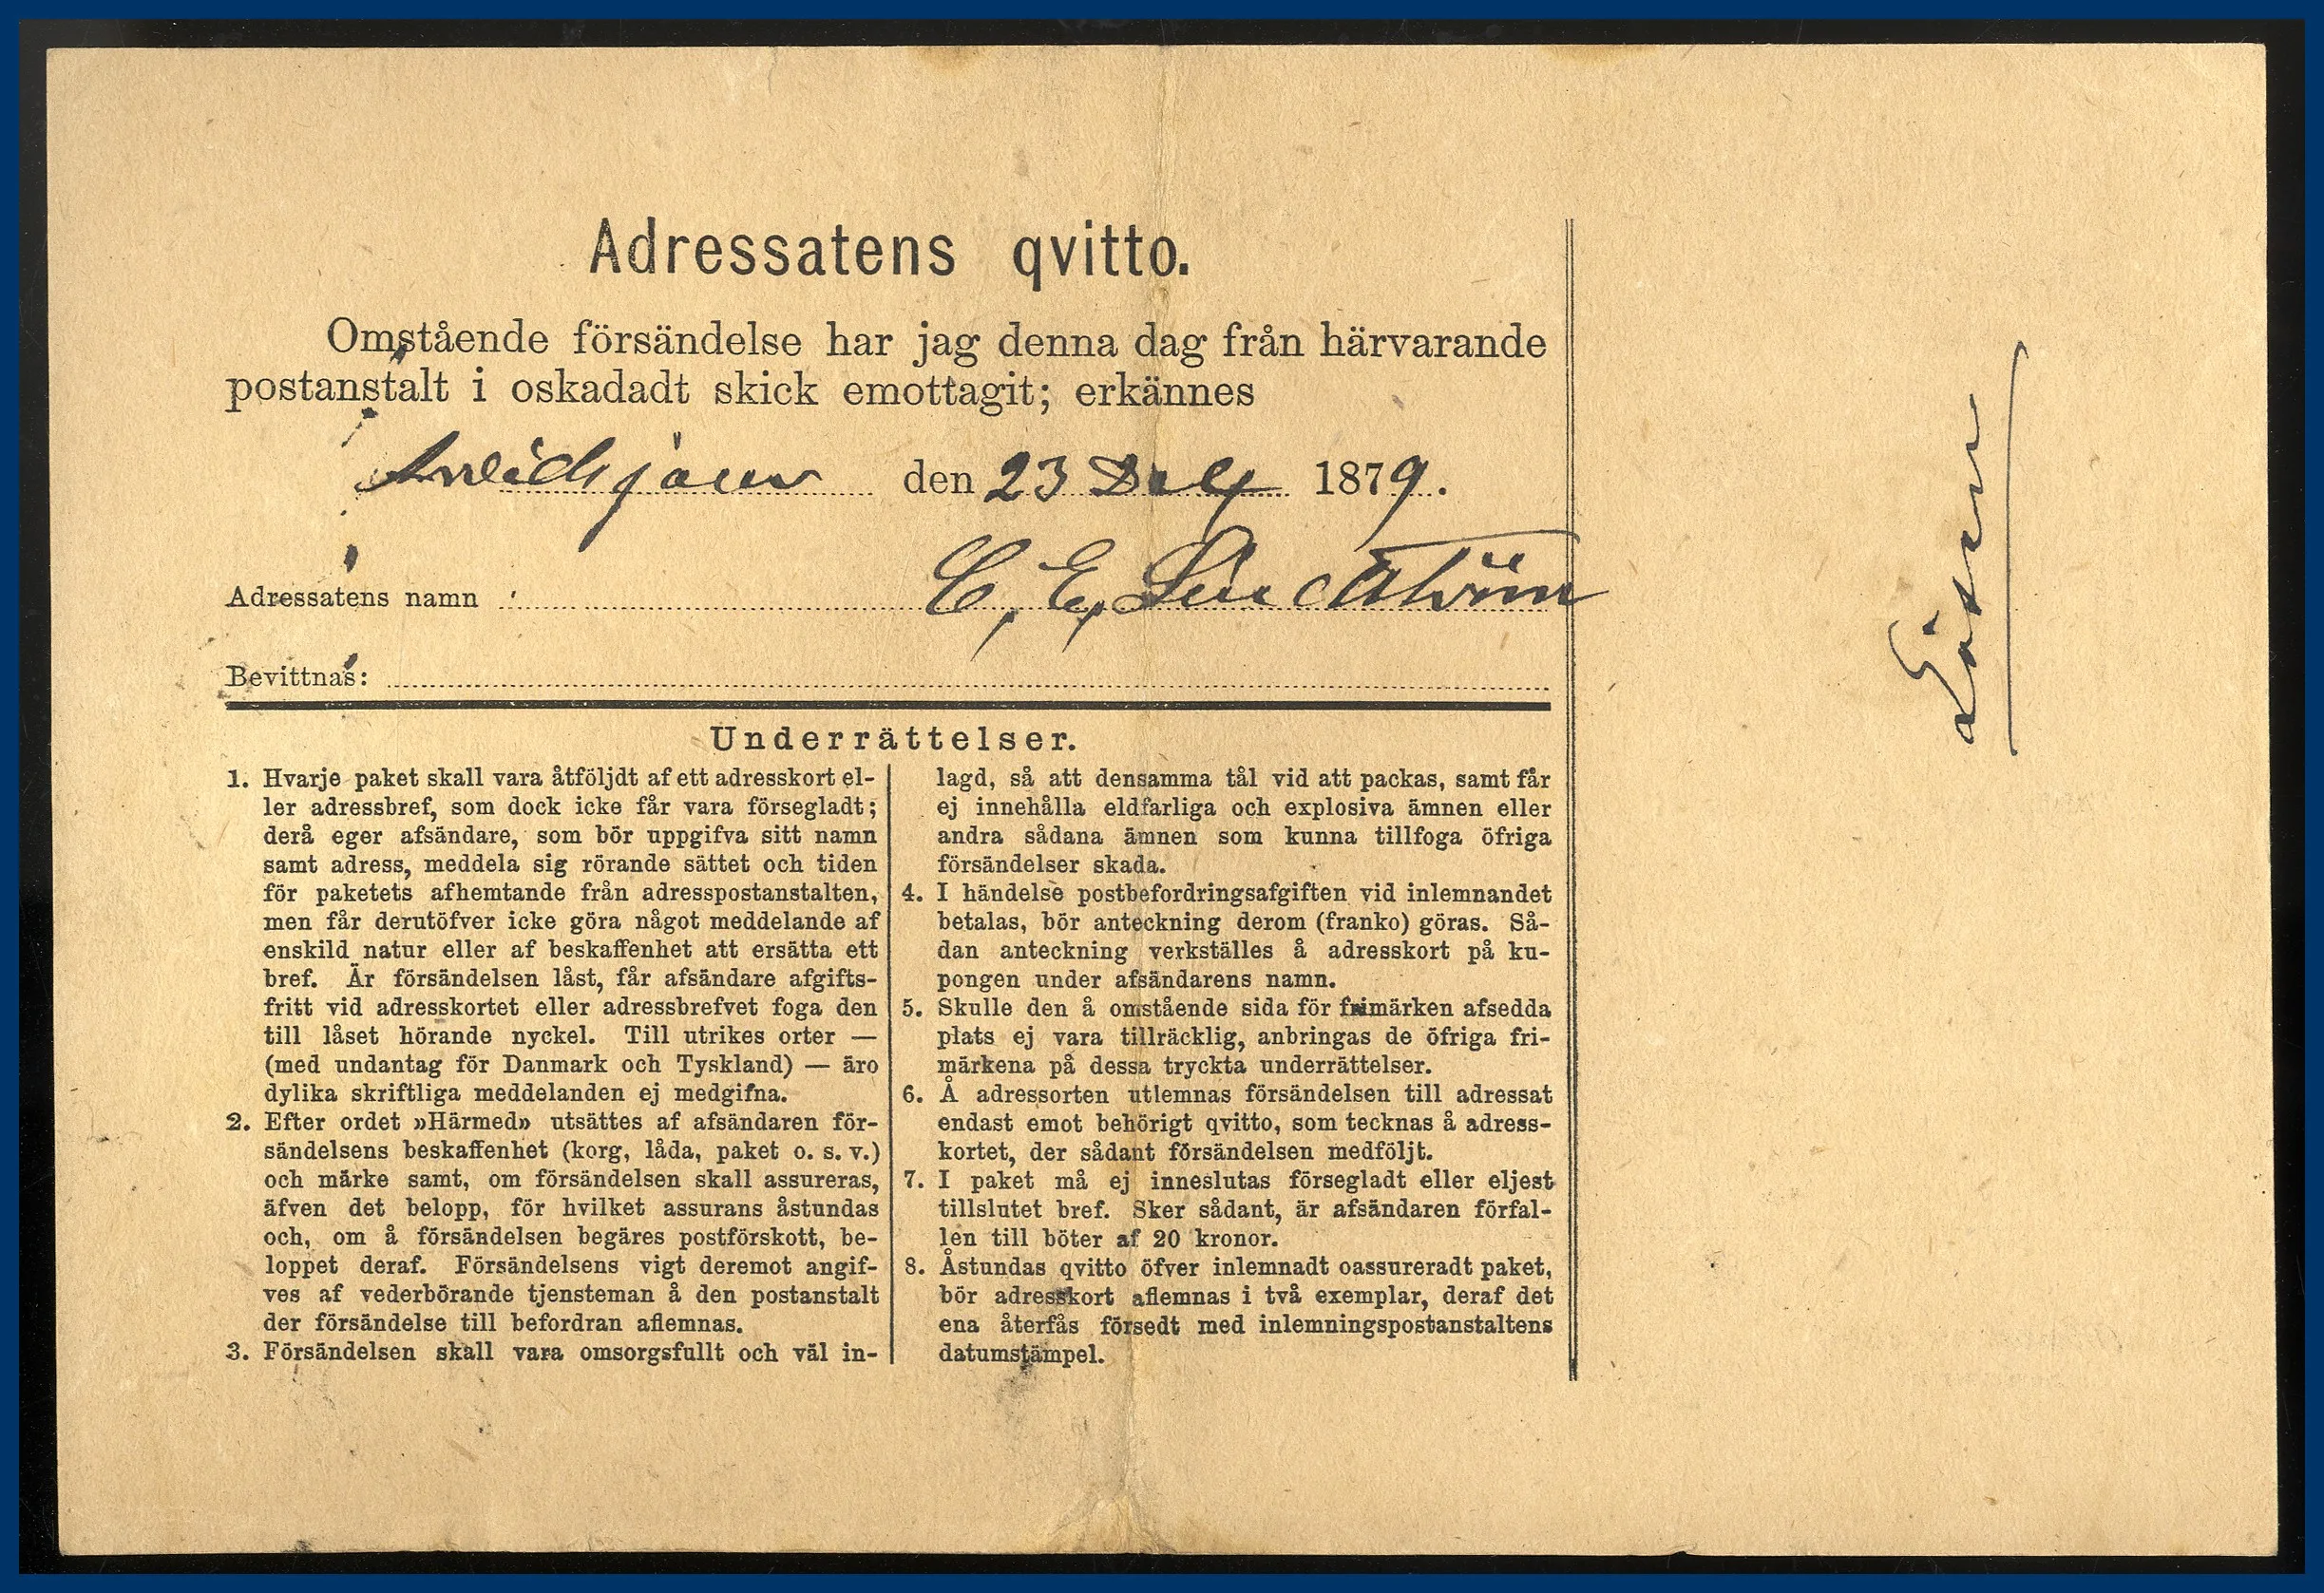 Adressatens qvitto.
Omstående försändelse har jag denna dag från härvarande
postanstalt i oskadadt skick emottagit; erkännes
Arvidsjaur den 23 1879.
Adressatens namn : C. E. Lindström
Bevittnas:
Underrättelser.
1. Hvarje paket skall vara åtföljdt af ett adresskort el-
ler adressbref, som dock icke får vara försegladt;
derå eger afsändare, som bör uppgifva sitt namn
samt adress, meddela sig rörande sättet och tiden
för paketets afhemtande från adresspostanstalten,
men får derutöfver icke göra något meddelande af
enskild natur eller af beskaffenhet att ersätta ett
bref. Är försändelsen låst, får afsändare afgifts-
fritt vid adresskortet eller adressbrefvet foga den
till låset hörande nyckel. Till utrikes orter —
(med undantag för Danmark och Tyskland) — äro
dylika skriftliga meddelanden ej medgifna.
2. Efter ordet »Härmed» utsättes af afsändaren för-
sändelsens beskaffenhet (korg, låda, paket o. s. v.)
och märke samt, om försändelsen skall assureras,
äfven det belopp, för hvilket assurans åstundas
och, om å försändelsen begäres postförskott, be-
loppet deraf. Försändelsens vigt deremot angif-
ves af vederbörande tjensteman å den postanstalt
der försändelse till befordran aflemnas.
3. Försändelsen skall vara omsorgsfullt och väl in-
lagd, så att densamma tål vid att packas, samt får
ej innehålla eldfarliga och explosiva ämnen eller
andra sådana ämnen som kunna tillfoga öfriga
försändelser skada.
4. I händelse postbefordringsafgiften vid inlemnandet
betalas, bör anteckning derom (franko) göras. Så-
dan anteckning verkställes å adresskort på ku-
pongen under afsändarens namn.
5. Skulle den å omstående sida för frimärken afsedda
plats ej vara tillräcklig, anbringas de öfriga fri-
märkena på dessa tryckta underrättelser.
6. Å adressorten utlemnas försändelsen till adressat
endast emot behörigt qvitto, som tecknas å adress-
kortet, der sådant försändelsen medföljt.
7. I paket må ej inneslutas försegladt eller eljest
tillslutet bref. Sker sådant, är afsändaren förfal-
len till böter af 20 kronor.
8. Åstundas qvitto öfver inlemnadt oassureradt paket,
bör adresskort aflemnas i två exemplar, deraf det
ena återfås försedt med inlemningspostanstaltens
datumstämpel.